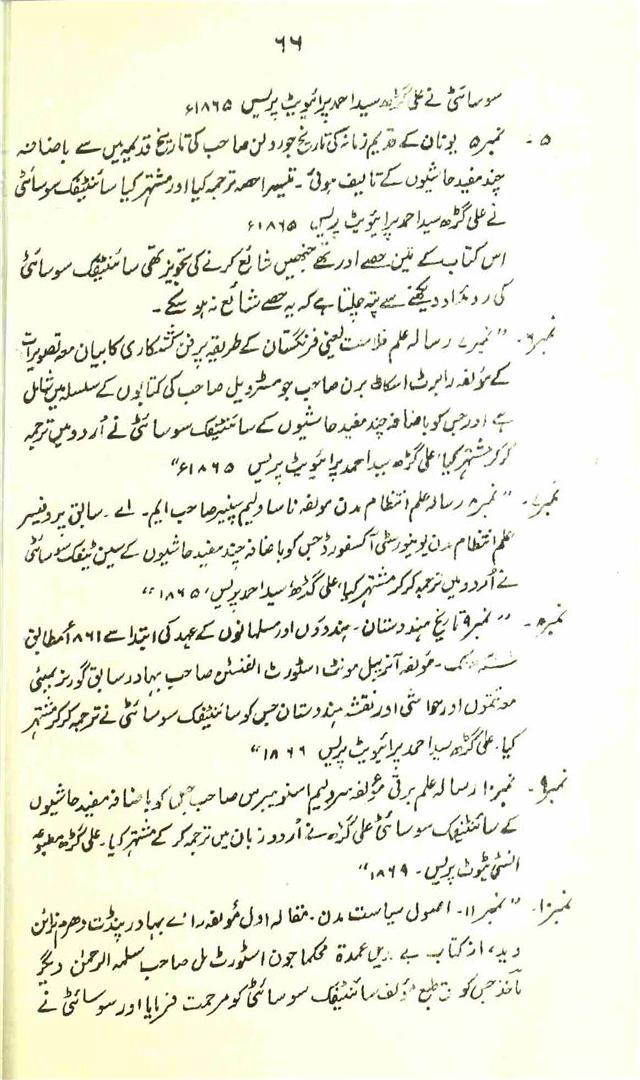 ۶۶
سوسائٹی نے علی گڑھ سید احمد پرائیویٹ پریس ۱۸۶۵ء
۵ - نمبر ۵ یونان کے قدیم زمانہ کی تاریخ جو رولن صاحب کی تاریخ قدیمہ میں سے باضافہ
چند مفید حاشیوں کے تالیف ہوئی ۔ تیسرا حصہ ترجمہ کیا اور مشتہر کیا سائنٹیفک سوسائٹی
نے علی گڑھ سید احمد پرائیویٹ پریس ۱۸۶۵ء
اس کتاب کے تین حصے اور تھے جنھیں شائع کرنے کی تجویز تھی سائنٹیفک سوسائٹی
کی روئداد دیکھنے سے پتہ چلتا ہے کہ یہ حصے شائع نہ ہو سکے ۔
نمبر ۶ - " نمبر ۷ رسالہ علم فلاحت یعنی فرنگستان کے طریقہ پر فن کشتکاری کا بیان معہ تصویرات
کے مؤلفہ رابرٹ اسکاٹ برن صاحب جو مسٹر ویل صاحب کی کتابوں کے سلسلہ میں شامل
ہے اور جس کو باضافہ چند مفید حاشیوں کے سائنٹیفک سوسائٹی نے اُردو میں ترجمہ
کر کر مشتہر کیا، علی گڑھ سید احمد پرائیویٹ پریس ۱۸۶۵ء"
نمبر ۷ - " نمبر ۸ رسالہ علم انتظام مدن مولفہ ناسا ولیم سنیر صاحب ایم ۔ اے ۔ سابق پروفیسر
علم انتظام مدن یونیورسٹی آکسفورڈ جس کو باضافہ چند مفید حاشیوں کے سین ٹیفک سوسائٹی
نے اُردو میں ترجمہ کر کر مشتہر کیا، علی گڈھ سید احمد پریس، ۱۸۶۵"
نمبر ۸ - " نمبر ۹ تاریخ ہندوستان - ہندوؤں اور مسلمانوں کے عہد کی ابتدا سے ۱۸۶۱ء مطابق
تک ۔ مؤلفہ آنریبل مونٹ اسٹورٹ الفنسٹن صاحب بہادر سابق گورنر بمبئی
معہ تتموں اور حواشی اور نقشہ ہندوستان جس کو سائنٹیفک سوسائٹی نے ترجمہ کر کر مشتہر
کیا۔ علی گڑھ سید احمد پرائیویٹ پریس ۱۸۶۶"
نمبر ۹ - نمبر ۱۰ رسالہ علم برقی مؤلفہ سر ولیم اسنو ہیرس صاحب جس کو باضافہ مفید حاشیوں
کے سائنٹیفک سوسائٹی علی گڑھ نے اُردو زبان میں ترجمہ کر کے مشتہر کیا ۔ علی گڑھ مطبوعہ
انسٹی ٹیوٹ پریس - ۱۸۶۹"
نمبر ۱۰ - " نمبر ۱۱ - اصول سیاست مدن - مقالہ اول مؤلفہ رائے بہادر پنڈت دھرم نرائن
از کتاب بے عدیل عمدۃ حکما جون اسٹورٹ مل صاحب سلمہ الرحمن دیگر
مآخذ جس کو مؤلف سائنٹیفک سوسائٹی کو مرحمت فرمایا اور سوسائٹی نے